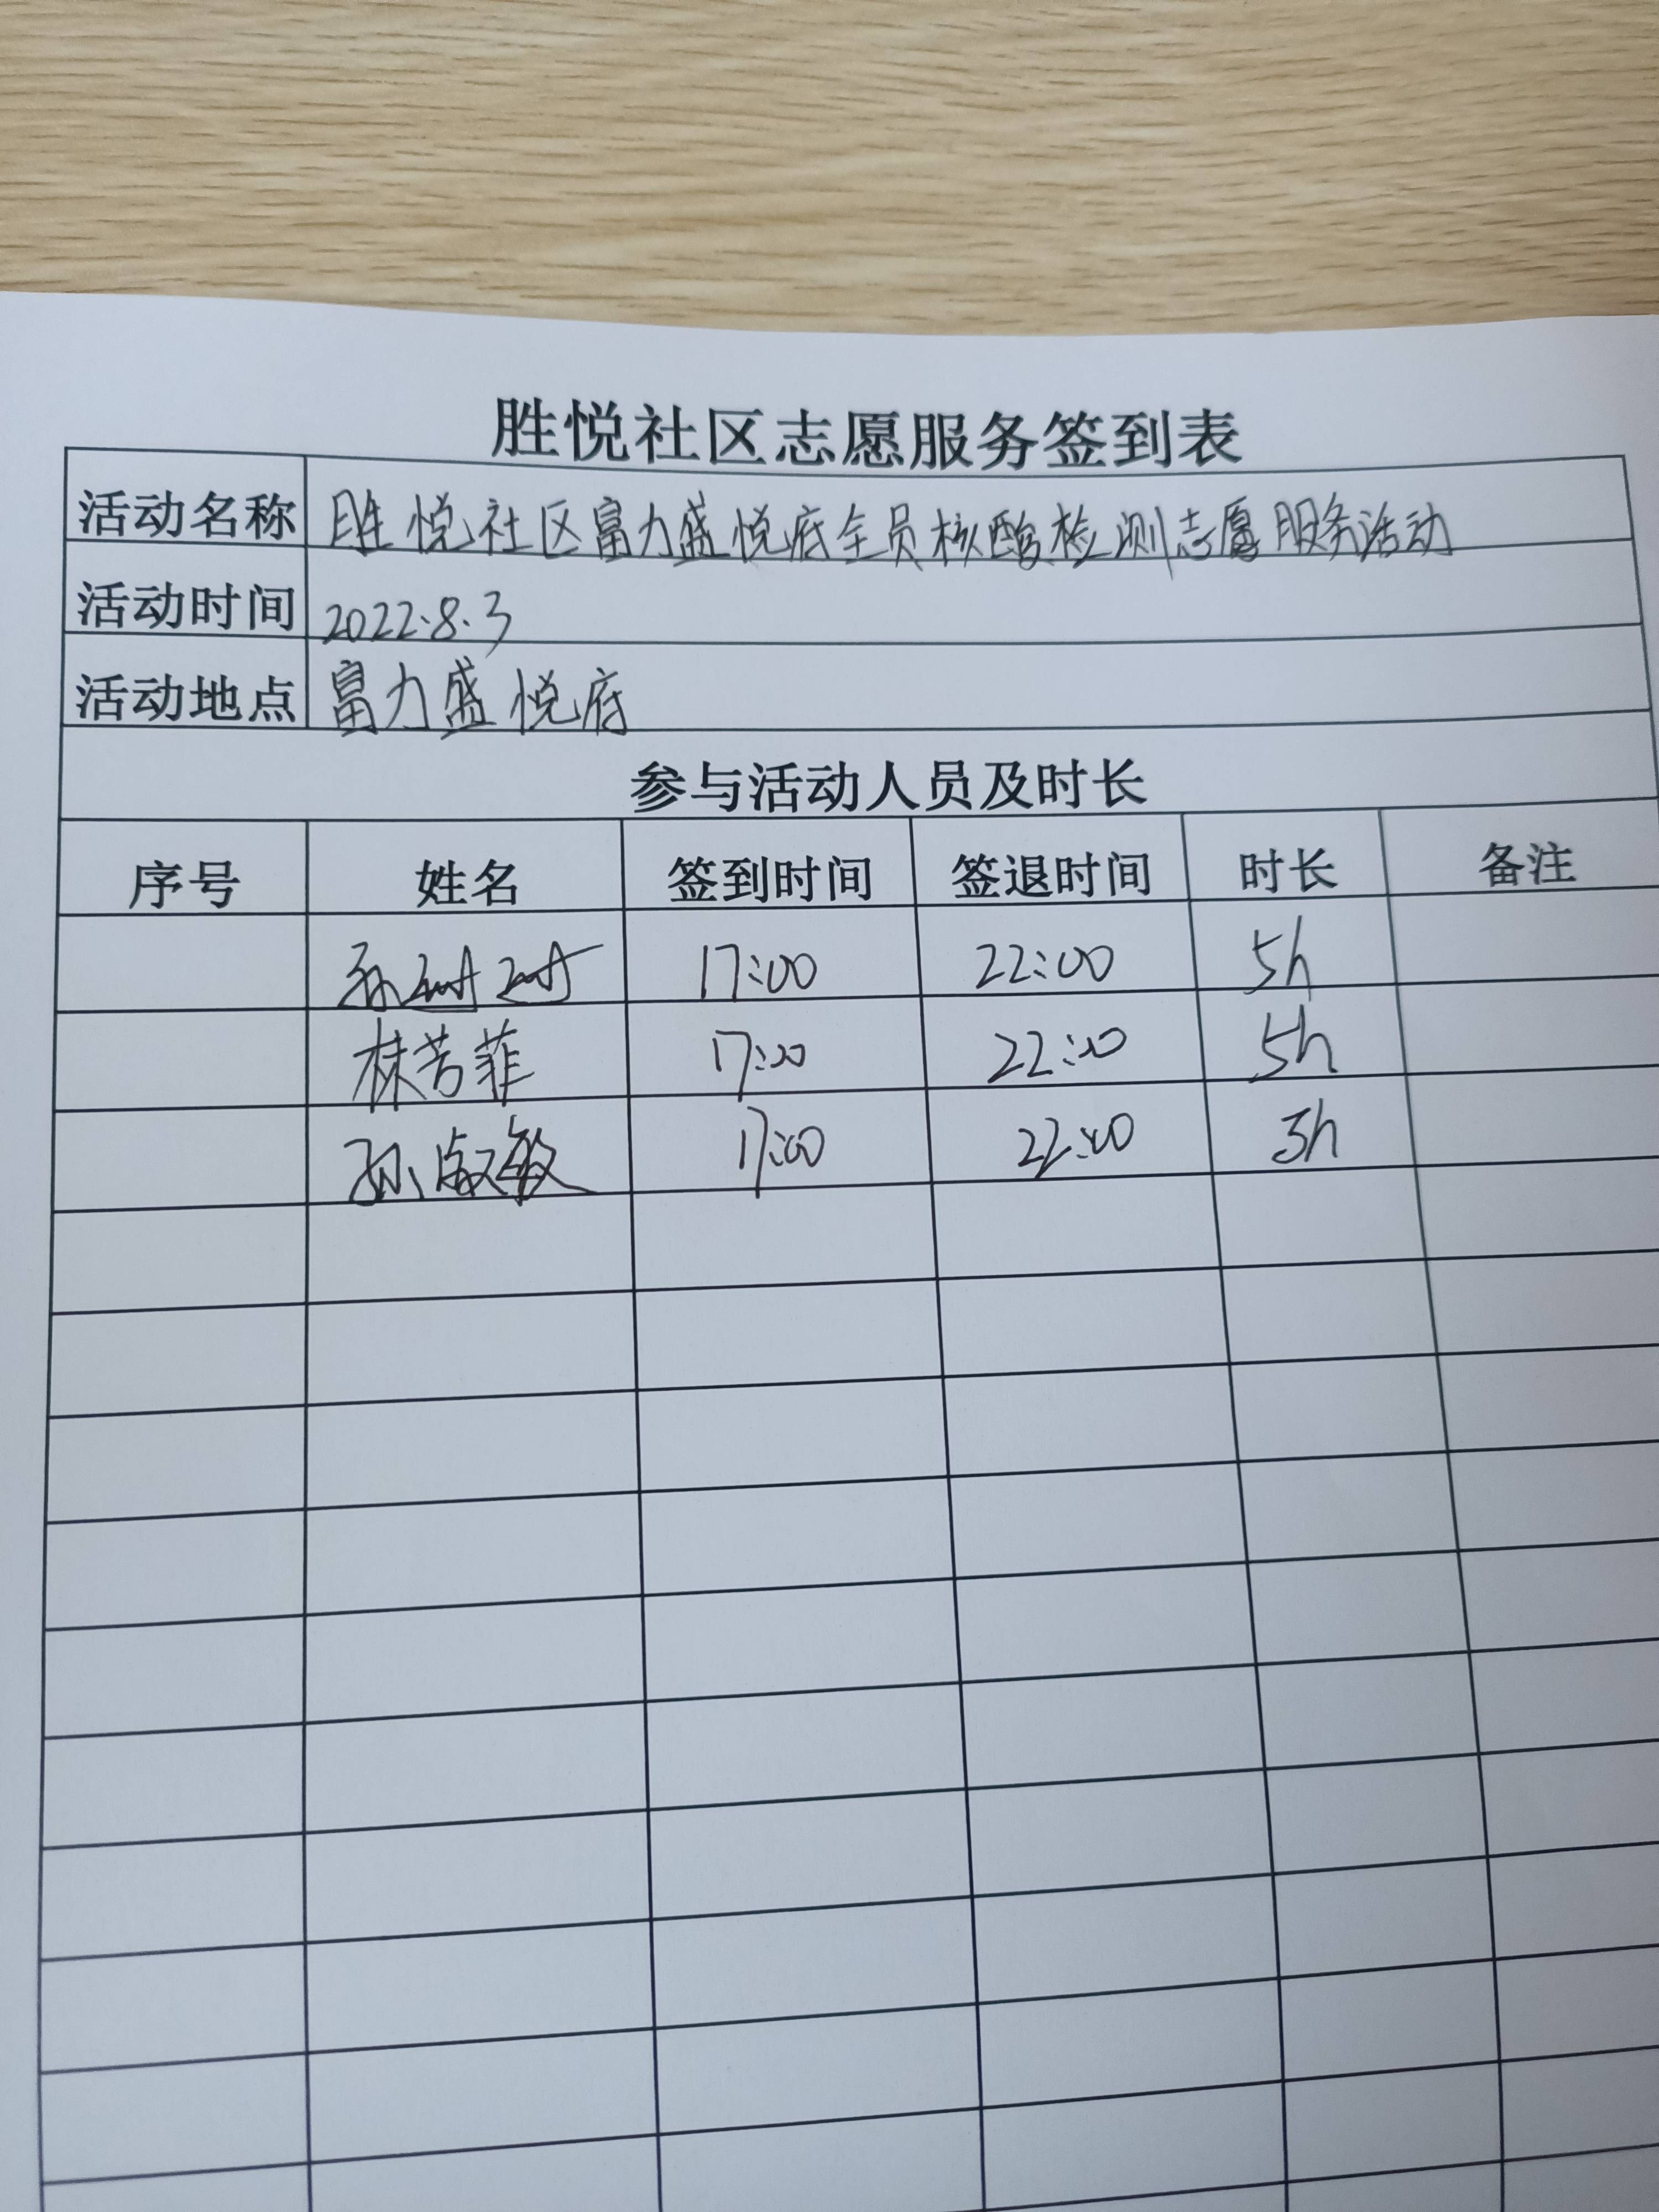 胜悦社区志愿服务签到表
活动名称 胜悦社区富力盛悦府全员核酸检测志愿服务活动
活动时间 2022.8.3
活动地点 富力盛悦府
参与活动人员及时长
序号 姓名 签到时间 签退时间 时长 备注
孙 17:00 22:00 5h
林芳菲 17:00 22:00 5h
孙淑敏 17:00 22:00 5h